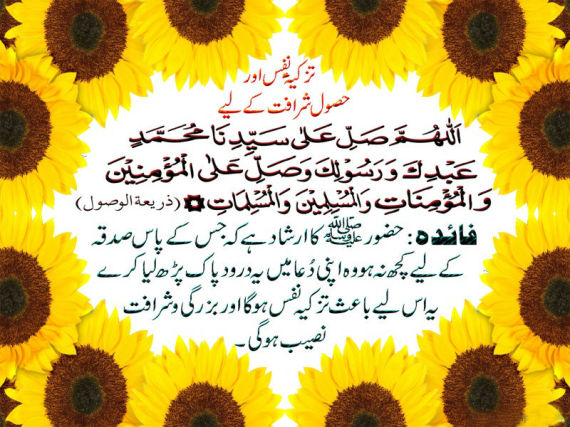 تزکیۂ نفس اور
حصول شرافت کے لیے
اَللّٰهُمَّ صَلِّ عَلٰى سَيِّدِنَا مُحَمَّدٍ
عَبْدِكَ وَرَسُوْلِكَ وَصَلِّ عَلَى الْمُؤْمِنِيْنَ
وَالْمُؤْمِنَاتِ وَالْمُسْلِمِيْنَ وَالْمُسْلِمَاتِ (ذریعۃ الوصول)
فائدہ: حضور ﷺ کا ارشاد ہے کہ جس کے پاس صدقہ
کے لیے کچھ نہ ہو وہ اپنی دُعا میں یہ درود پاک پڑھ لیا کرے
یہ اس لیے باعث تزکیہ نفس ہوگا اور بزرگی و شرافت
نصیب ہوگی۔